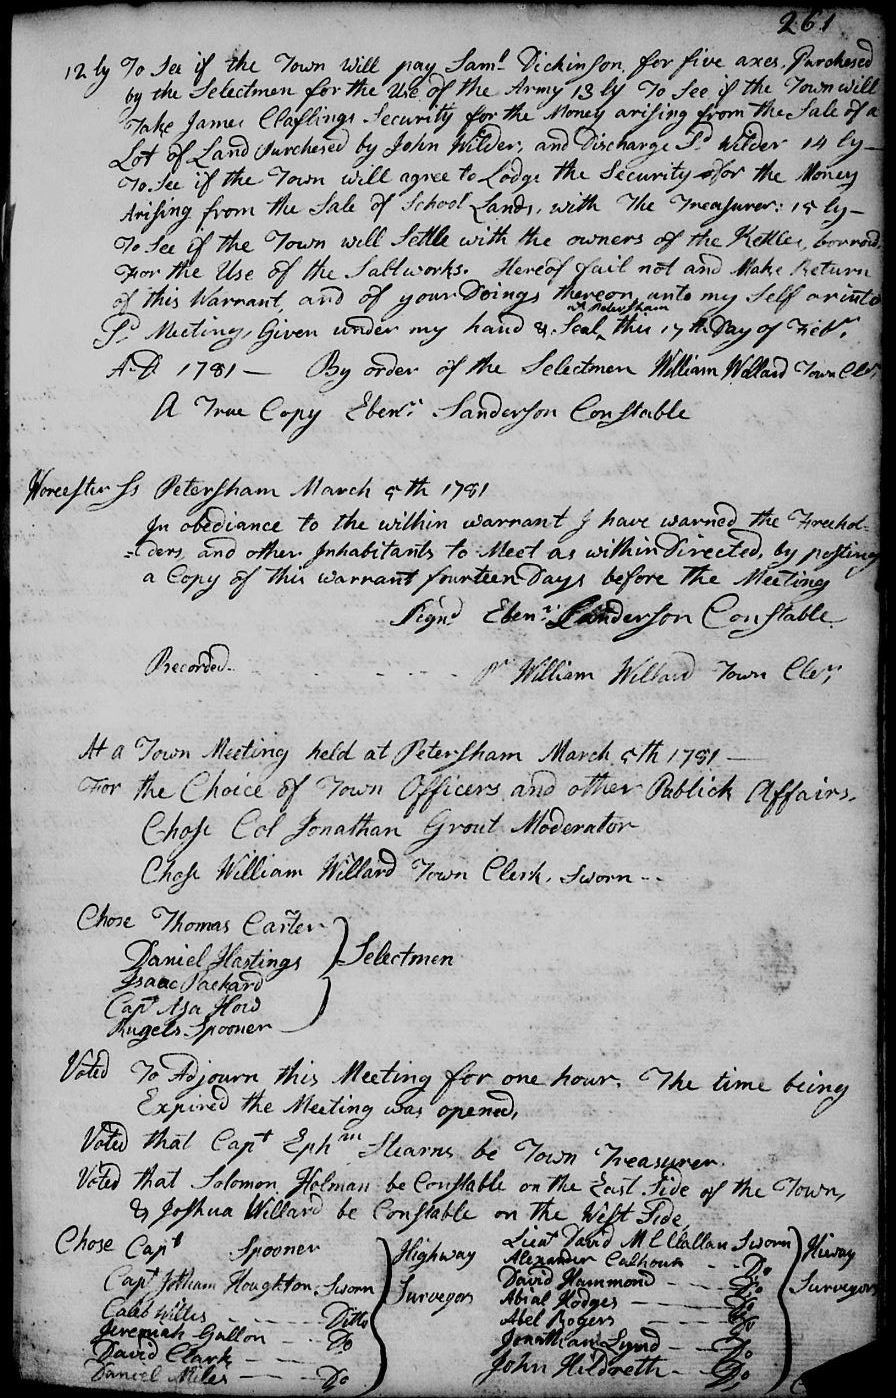 261
12ly To See if the Town will pay Saml Dickinson for five axes, Purchesed
by the Selectmen for the Use of the Army 13ly To See if the Town will
Take James Claflings Security for the Money arising from the Sale of a
Lot of Land Purchesed by John Wilder, and Discharge Sd Wilder 14ly—
To See if the Town will agree to Lodge the Security for the Money
Arising from the Sale of School Lands, with The Treasurer: 15ly—
To See if the Town will Settle with the owners of the Kettles, borrowd
For the Use of the Saltworks. Hereof fail not and Make Return
of this Warrant, and of your Doings thereon unto my Self or into
at Petersham
Sd Meeting, Given under my hand & Seal this 17th Day of Febr.
A.D 1781— By order of the Selectmen William Willard Town Cler,
A True Copy Ebenr Sanderson Constable
Worcester Ss Petersham March 5th 1781
In obediance to the within warrant I have warned the Freehol-
=ders, and other Inhabitants to Meet as within Directed, by posting
a Copy of this warrant fourteen Days before the Meeting
Signd Ebenr Sanderson Constable
Recorded pr William Willard Town Cler,
At a Town Meeting held at Petersham March 5th 1781—
For the Choice of Town Officers and other Publick Affairs.
Chose Col Jonathan Grout Moderator
Chose William Willard Town Clerk, Sworn --
Chose Thomas Carter
Daniel Hastings } Selectmen
Isaac Packard
Capt Asa How
Rugels Spooner
Voted To Adjourn this Meeting for one hour. The time being
Expired the Meeting was opened,
Voted that Capt Ephm Stearns be Town Treasurer.
Voted that Solomon Holman be Constable on the East Side of the Town,
& Joshua Willard be Constable on the West Side,
Chose Capt Spooner
Capt Jotham Houghton, Sworn
Caleb Willis — Ditto
Jeremiah Gallon — Do
David Clark —
Daniel Miles — Do
} Highway
Surveyors
Lieut David McClallan Sworn
Alexander Calhoun — Do
David Hammond — Do
Abial Hodges — Do
Abel Rogers — Do
Jonathan Lynd — Do
John Hildreth — Do
} Hiway
Surveyors